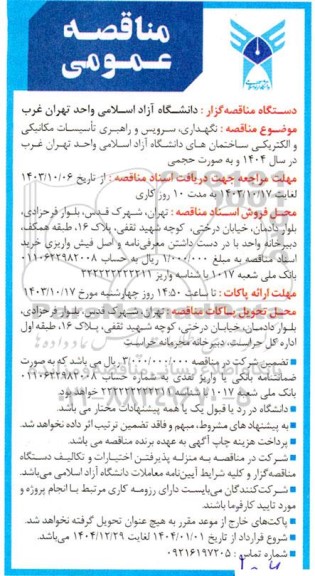 مناقصه
عمومی
دستگاه مناقصه‌گزار : دانشگاه آزاد اسلامی واحد تهران غرب
موضوع مناقصه : نگهداری، سرویس و راهبری تأسیسات مکانیکی
و الکتریکی ساختمان های دانشگاه آزاد اسلامی واحد تهران غرب
در سال ۱۴۰۴ و به صورت حجمی
مهلت مراجعه جهت دریافت اسناد مناقصه : از تاریخ ۱۴۰۳/۱۰/۰۶
لغایت ۱۴۰۳/۱۰/۱۷ به مدت ۱۰ روز کاری
محل فروش اسناد مناقصه : تهران، شهرک قدس، بلوار فرحزادی،
بلوار دادمان، خیابان درختی، کوچه شهید ثقفی، پلاک ۱۶، طبقه همکف،
دبیرخانه واحد با در دست داشتن معرفی‌نامه و اصل فیش واریزی خرید
اسناد مناقصه به مبلغ ۱/۰۰۰/۰۰۰ ریال به حساب ۰۱۱۰۶۲۲۹۸۲۰۰۸
بانک ملی شعبه ۱۰۱۷ با شناسه واریز
مهلت ارائه پاکات : تا ساعت ۱۴:۵۰ روز چهارشنبه مورخ ۱۴۰۳/۱۰/۱۷
محل تحویل پاکات مناقصه: تهران، شهرک قدس، بلوار فرحزادی،
بلوار دادمان، خیابان درختی، کوچه شهید ثقفی، پلاک ۱۶، طبقه اول
اداره کل حراست، دبیرخانه محرمانه حراست
تضمین شرکت در مناقصه ۳/۰۰۰/۰۰۰/۰۰۰ ریال می باشد که به صورت
ضمانتنامه بانکی یا واریز نقدی به شماره حساب ۰۱۱۰۶۲۲۹۸۲۰۰۸
بانک ملی شعبه ۱۰۱۷ با شناسه خواهد بود.
دانشگاه در رد یا قبول یک یا همه پیشنهادات مختار می باشد.
به پیشنهاد های مشروط، مبهم و فاقد تضمین ترتیب اثر داده نخواهد شد.
پرداخت هزینه چاپ آگهی به عهده برنده مناقصه می باشد.
شرکت در مناقصه به منزله پذیرفتن اختیارات و تکالیف دستگاه
مناقصه‌گزار و کلیه شرایط آیین‌نامه معاملات دانشگاه آزاد اسلامی می‌باشد.
شرکت‌کنندگان می‌بایست دارای رزومه کاری مرتبط با انجام پروژه و
مورد تایید کارفرما باشند.
پاکت‌های خارج از موعد مقرر به هیچ عنوان تحویل گرفته نخواهد شد.
شروع قرارداد از تاریخ ۱۴۰۴/۰۱/۰۱ لغایت ۱۴۰۴/۱۲/۲۹ می‌باشد.
شماره تماس : ۰۹۲۱۶۱۹۷۲۰۵